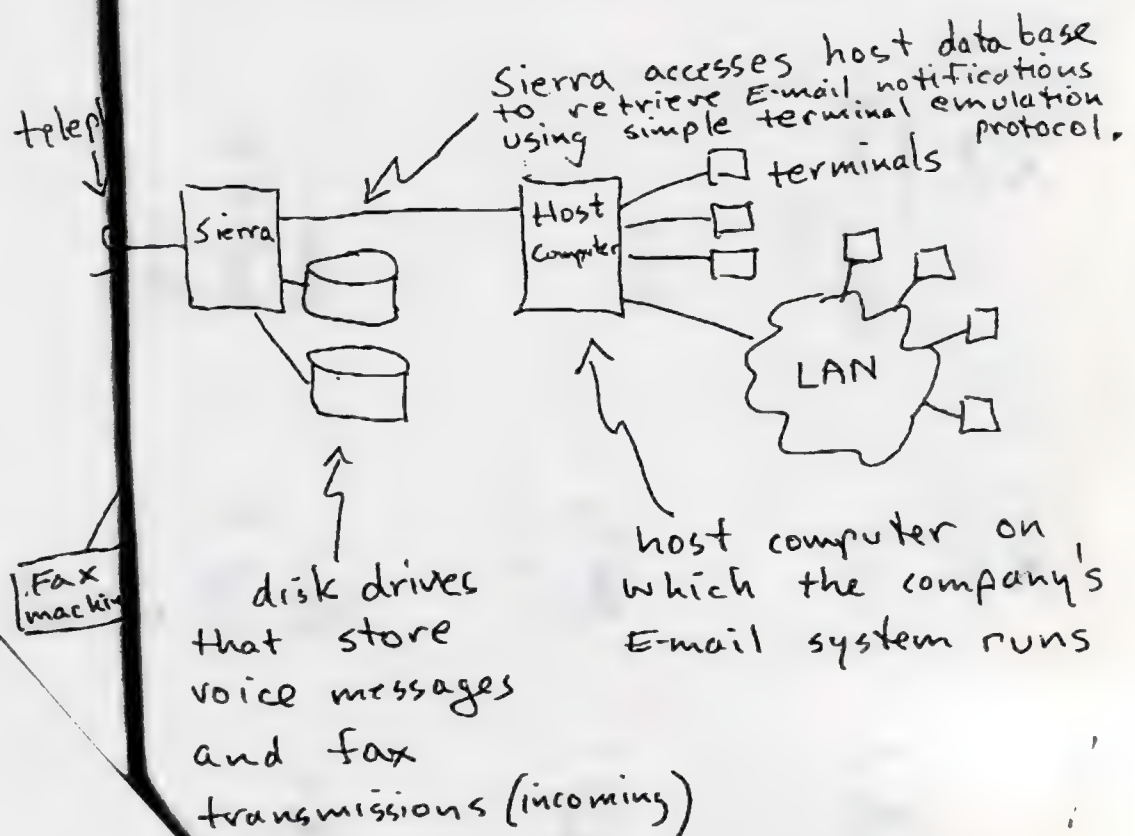 Sierra accesses host data base
to retrieve E-mail notifications
using simple terminal emulation
protocol.
telep
terminals
Sierra
Host
Computer
LAN
Fax
machin
disk drives
that store
voice messages
and fax
transmissions (incoming)
host computer on
which the company's
E-mail system runs